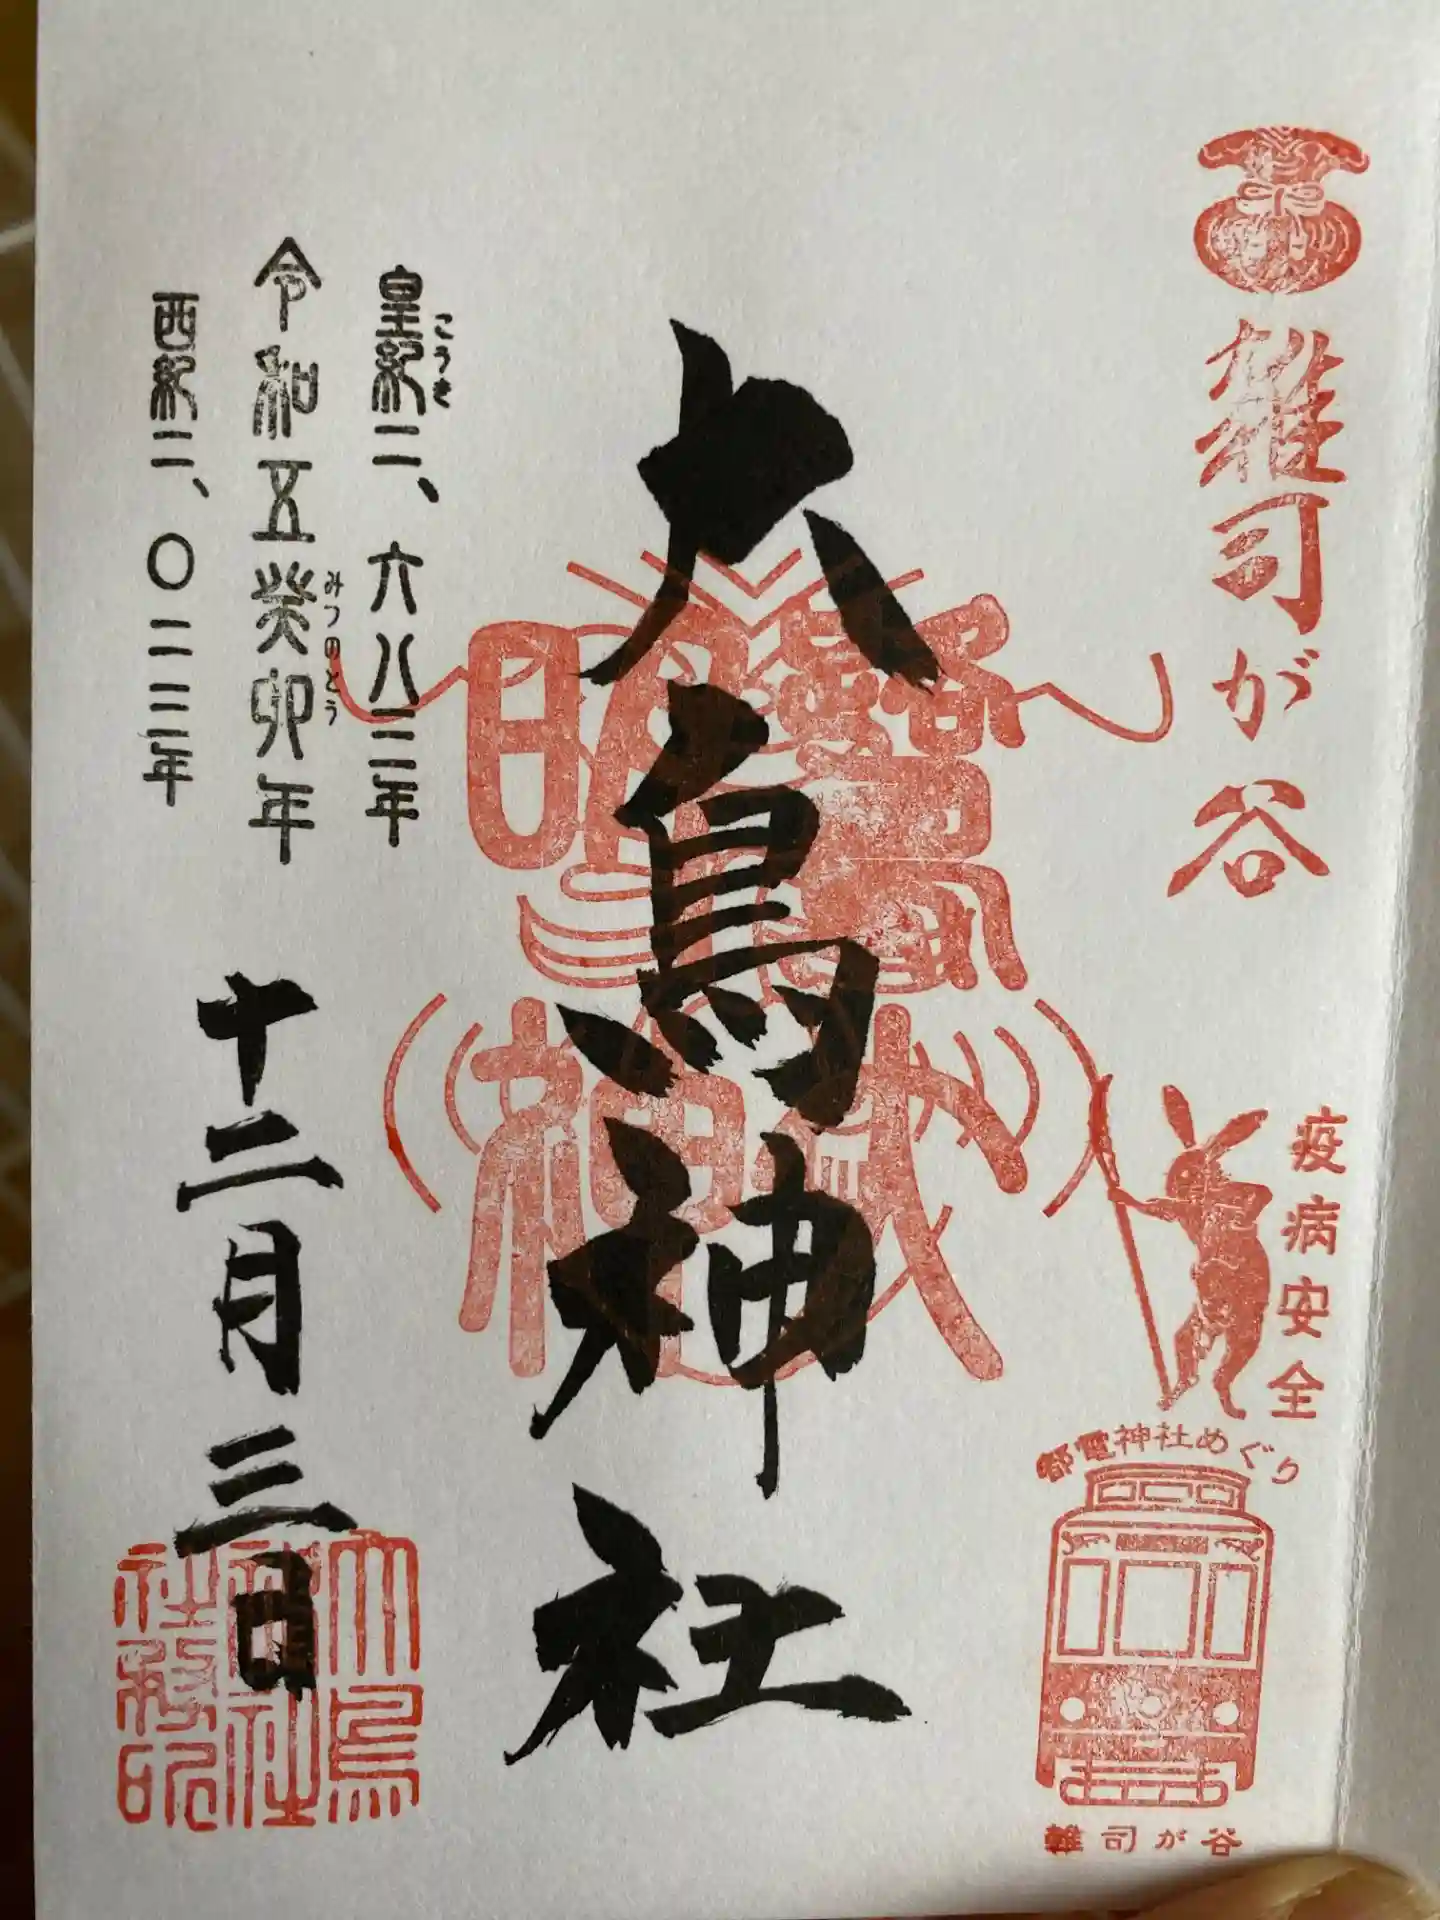 雑司が谷
疫病安全
都電神社めぐり
雑司が谷
大鳥神社
皇紀二、六八三年
こうき
令和五癸卯年
みづのとう
西紀二、〇二三年
十二月三日
大鳥
神社
社務印